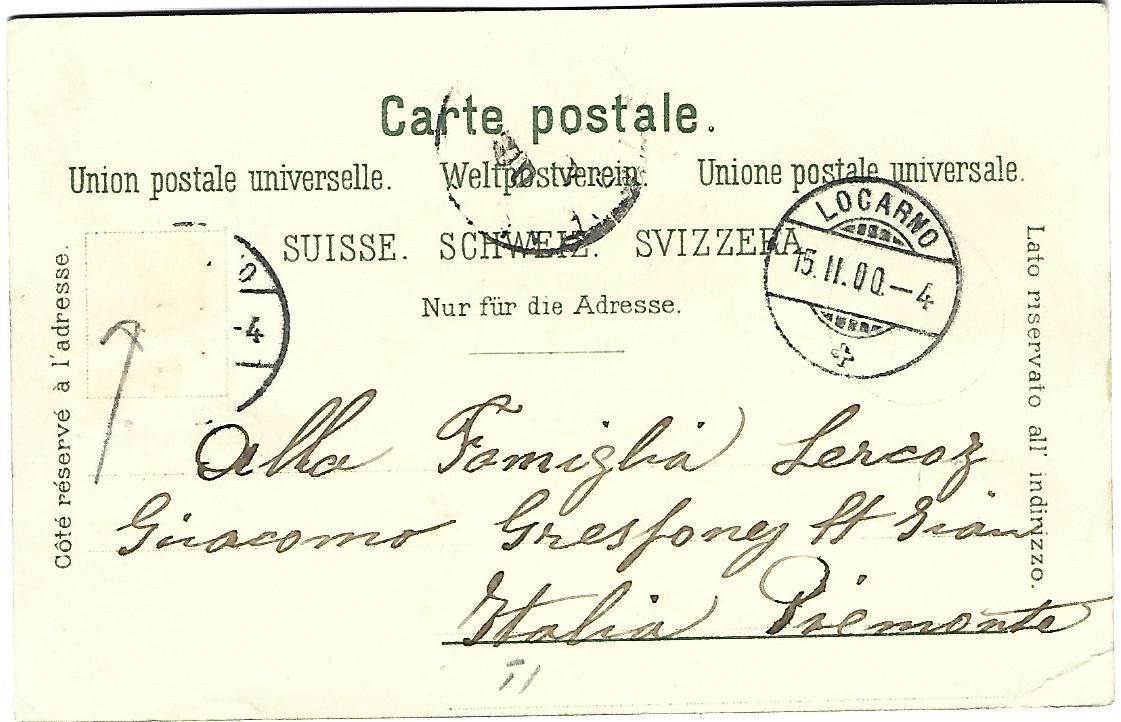 Carte postale.
Union postale universelle. Weltpostverein. Unione postale universale.
SUISSE. SCHWEIZ. SVIZZERA
Nur für die Adresse.
Côté réservé à l'adresse.
Lato riservato all' indirizzo.
LOCARNO
15.II.00.-4
O
-4
Alla Famiglia Lercoz
Giacomo Gresfoney St Gian
Italia Piemonte